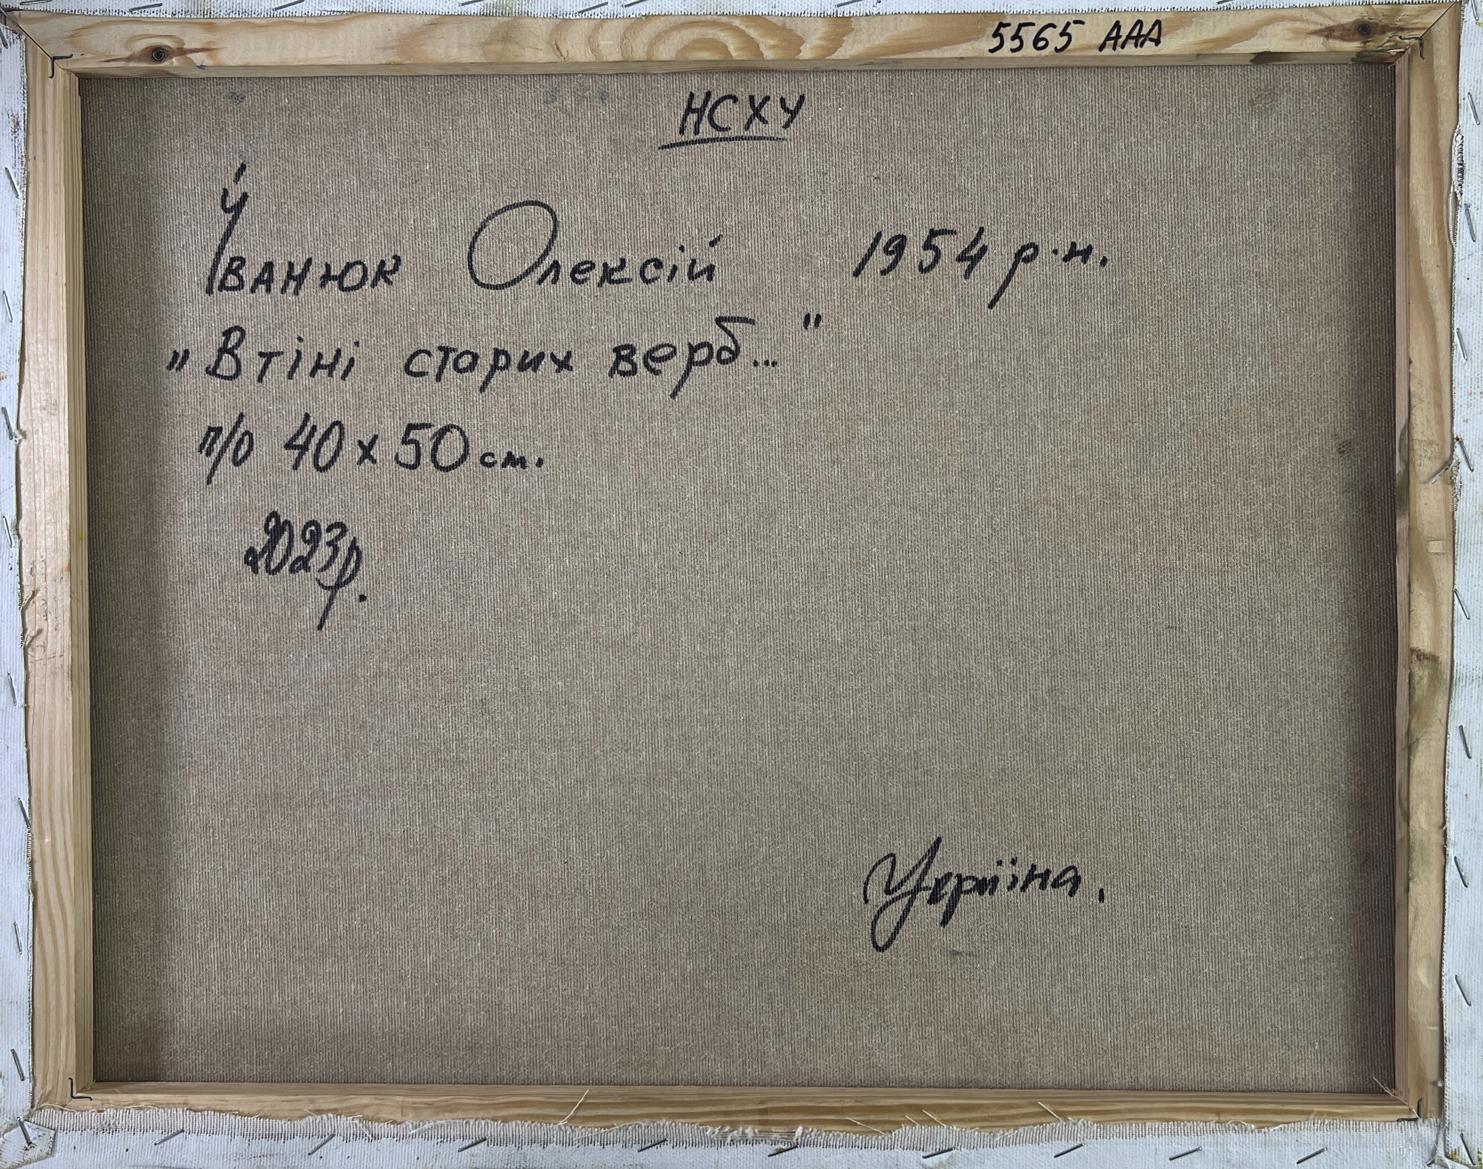 5565 ААА
НСХУ
Іванюк Олексій 1954 р.н.
„В тіні старих верб..."
п/о 40 х 50 см.
2023р.
Україна.